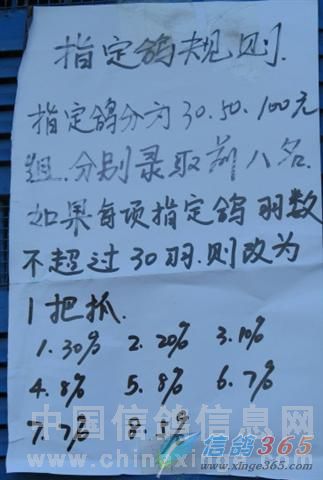 指定鸽规则.
指定鸽分为30.50.100元
组.分别录取前八名.
如果每项指定鸽羽数
不超过30羽.则改为
1把抓.
1.30% 2.20% 3.10%
4.8% 5.8% 6.7%
7.7% 8.
中国信鸽信息网
www.chinaxinge.com
信鸽365
www.xinge365.com